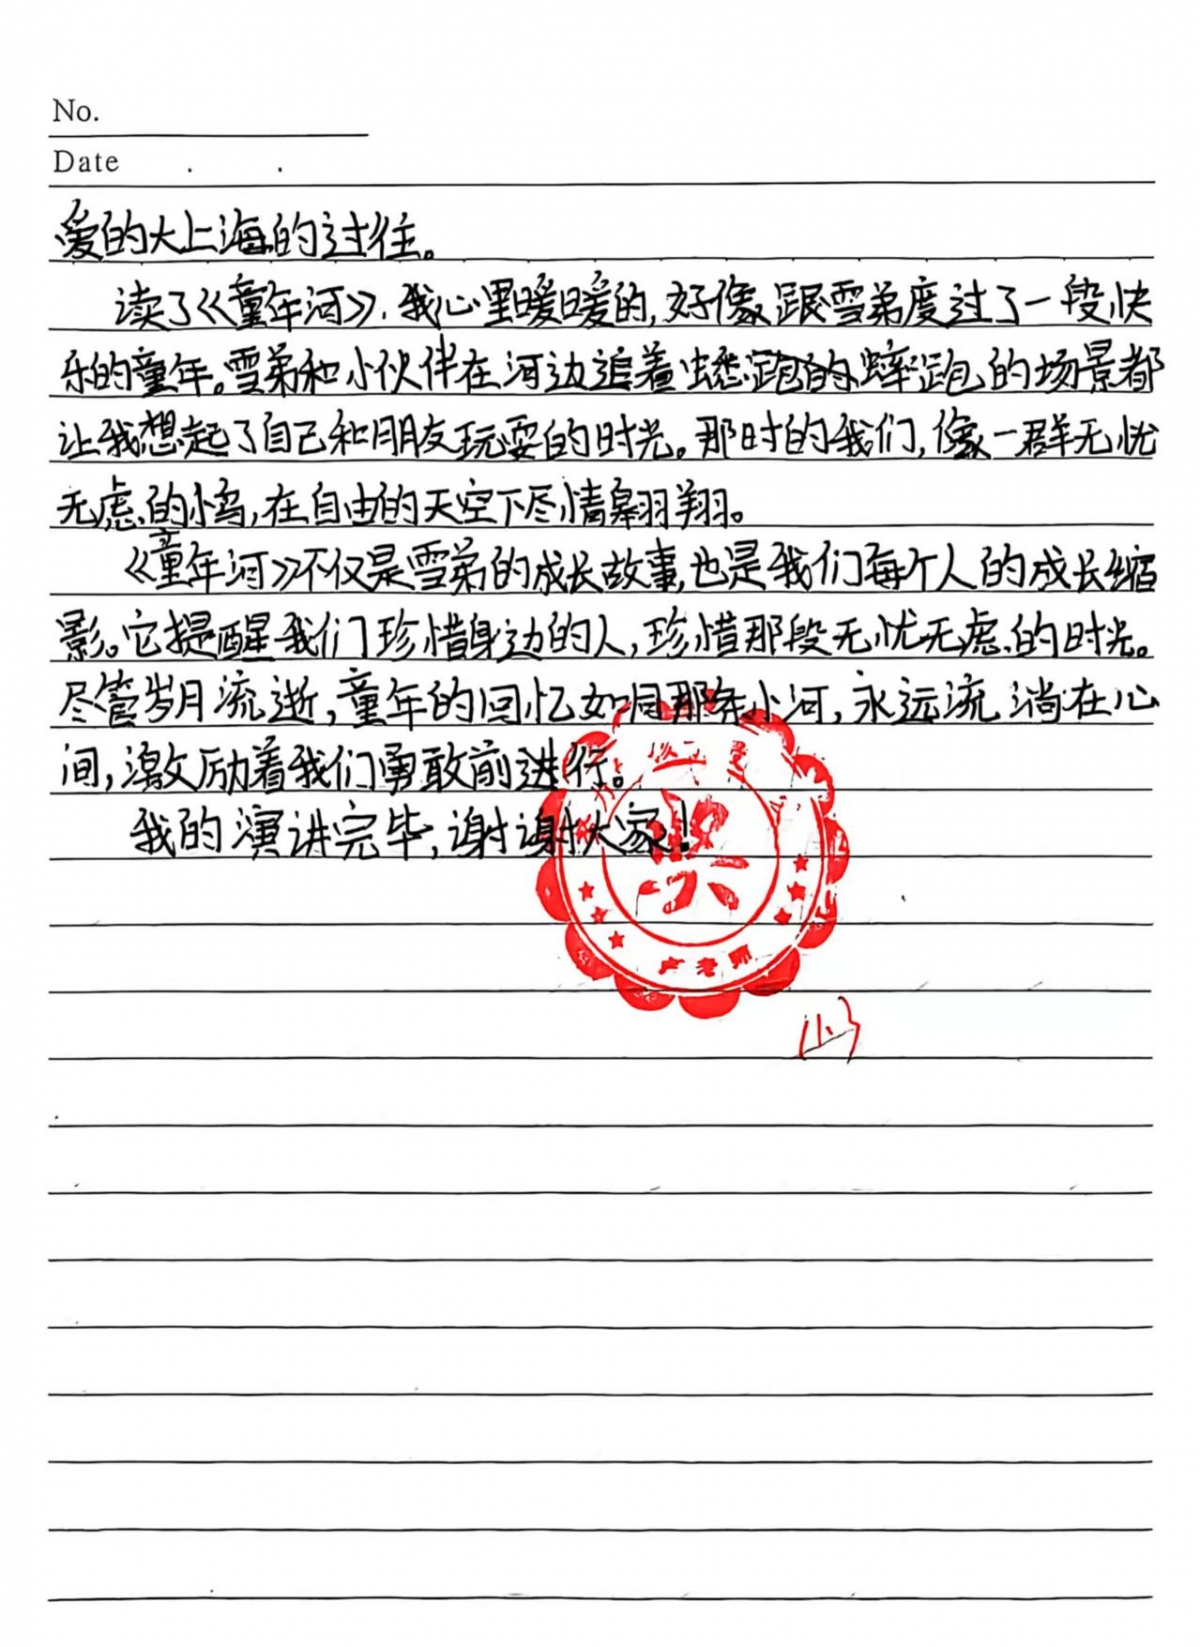 No.
Date . .
爱的大上海的过往。
读了《童年河》,我心里暖暖的,好像跟雪弟度过了一段快
乐的童年。雪弟和小伙伴在河边追着蟋跑的蟀跑的场景都
让我想起了自己和朋友玩耍的时光。那时的我们,像一群无忧
无虑的小鸟,在自由的天空下尽情翱翔。
《童年河》不仅是雪弟的成长故事,也是我们每个人的成长缩
影。它提醒我们珍惜身边的人,珍惜那段无忧无虑的时光。
尽管岁月流逝,童年的回忆如同那条小河,永远流淌在心
间,激励着我们勇敢前进行。
我的演讲完毕,谢谢大家!
奖
卢老师